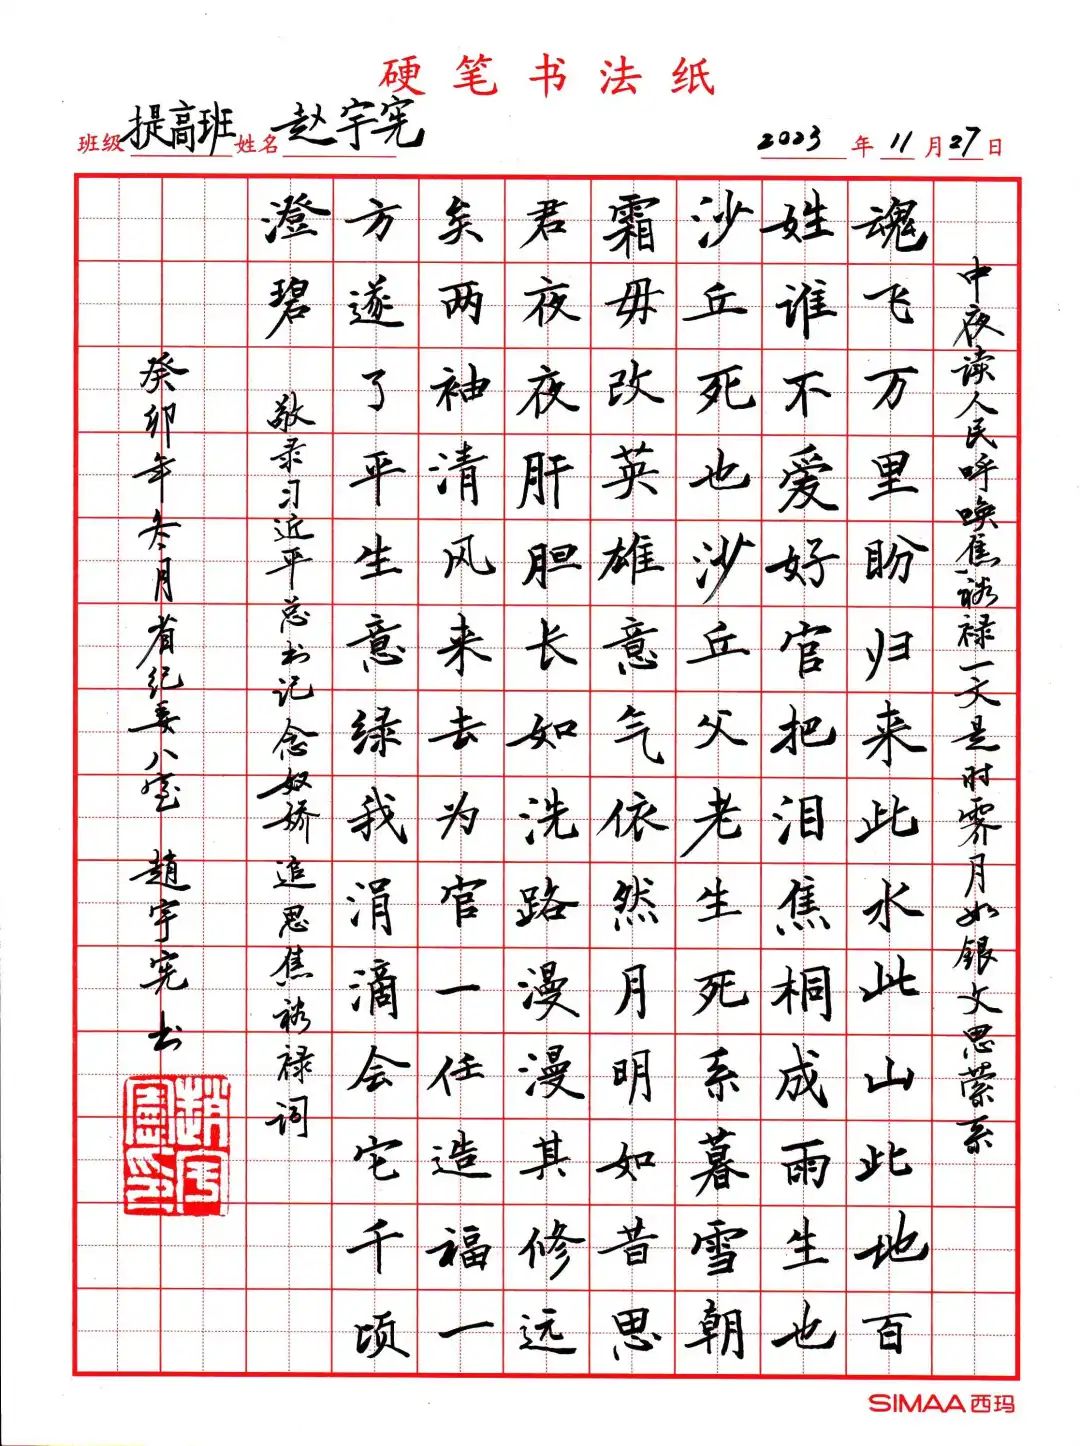 硬笔书法纸
班级 提高班 姓名 赵宇宪 2023 年 11 月 27 日
中夜读人民呼唤焦裕禄一文是时霁月如银文思萦系
魂飞万里盼归来此水此山此地百
姓谁不爱好官把泪焦桐成雨生也
沙丘死也沙丘父老生死系暮雪朝
霜毋改英雄意气依然月明如昔思
君夜夜肝胆长如洗路漫漫其修远
矣两袖清风来去为官一任造福一
方遂了平生意绿我涓滴会它千顷
澄碧
敬录习近平总书记念奴娇追思焦裕禄词
癸卯年冬月省纪委八室 趙宇宪书
趙宇憲印
SIMAA西玛